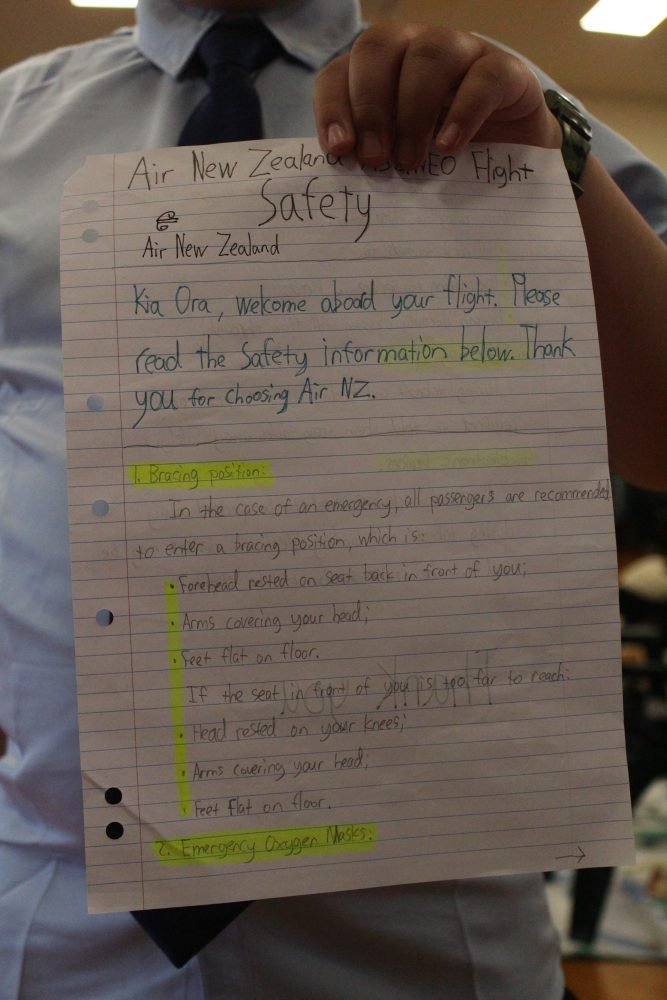 Air New Zealand Flight
Safety
Air New Zealand
Kia Ora, welcome aboad your flight. Please
read the Safety information below. Thank
you for choosing Air NZ.
1. Bracing position:
In the case of an emergency, all passengers are recommended
to enter a bracing position, which is:
• Forehead rested on seat back in front of you;
• Arms covering your head;
• Feet flat on floor.
If the seat in front of you is too far to reach:
• Head rested on your knees;
• Arms covering your head;
• Feet flat on floor.
2. Emergency Oxygen Masks: